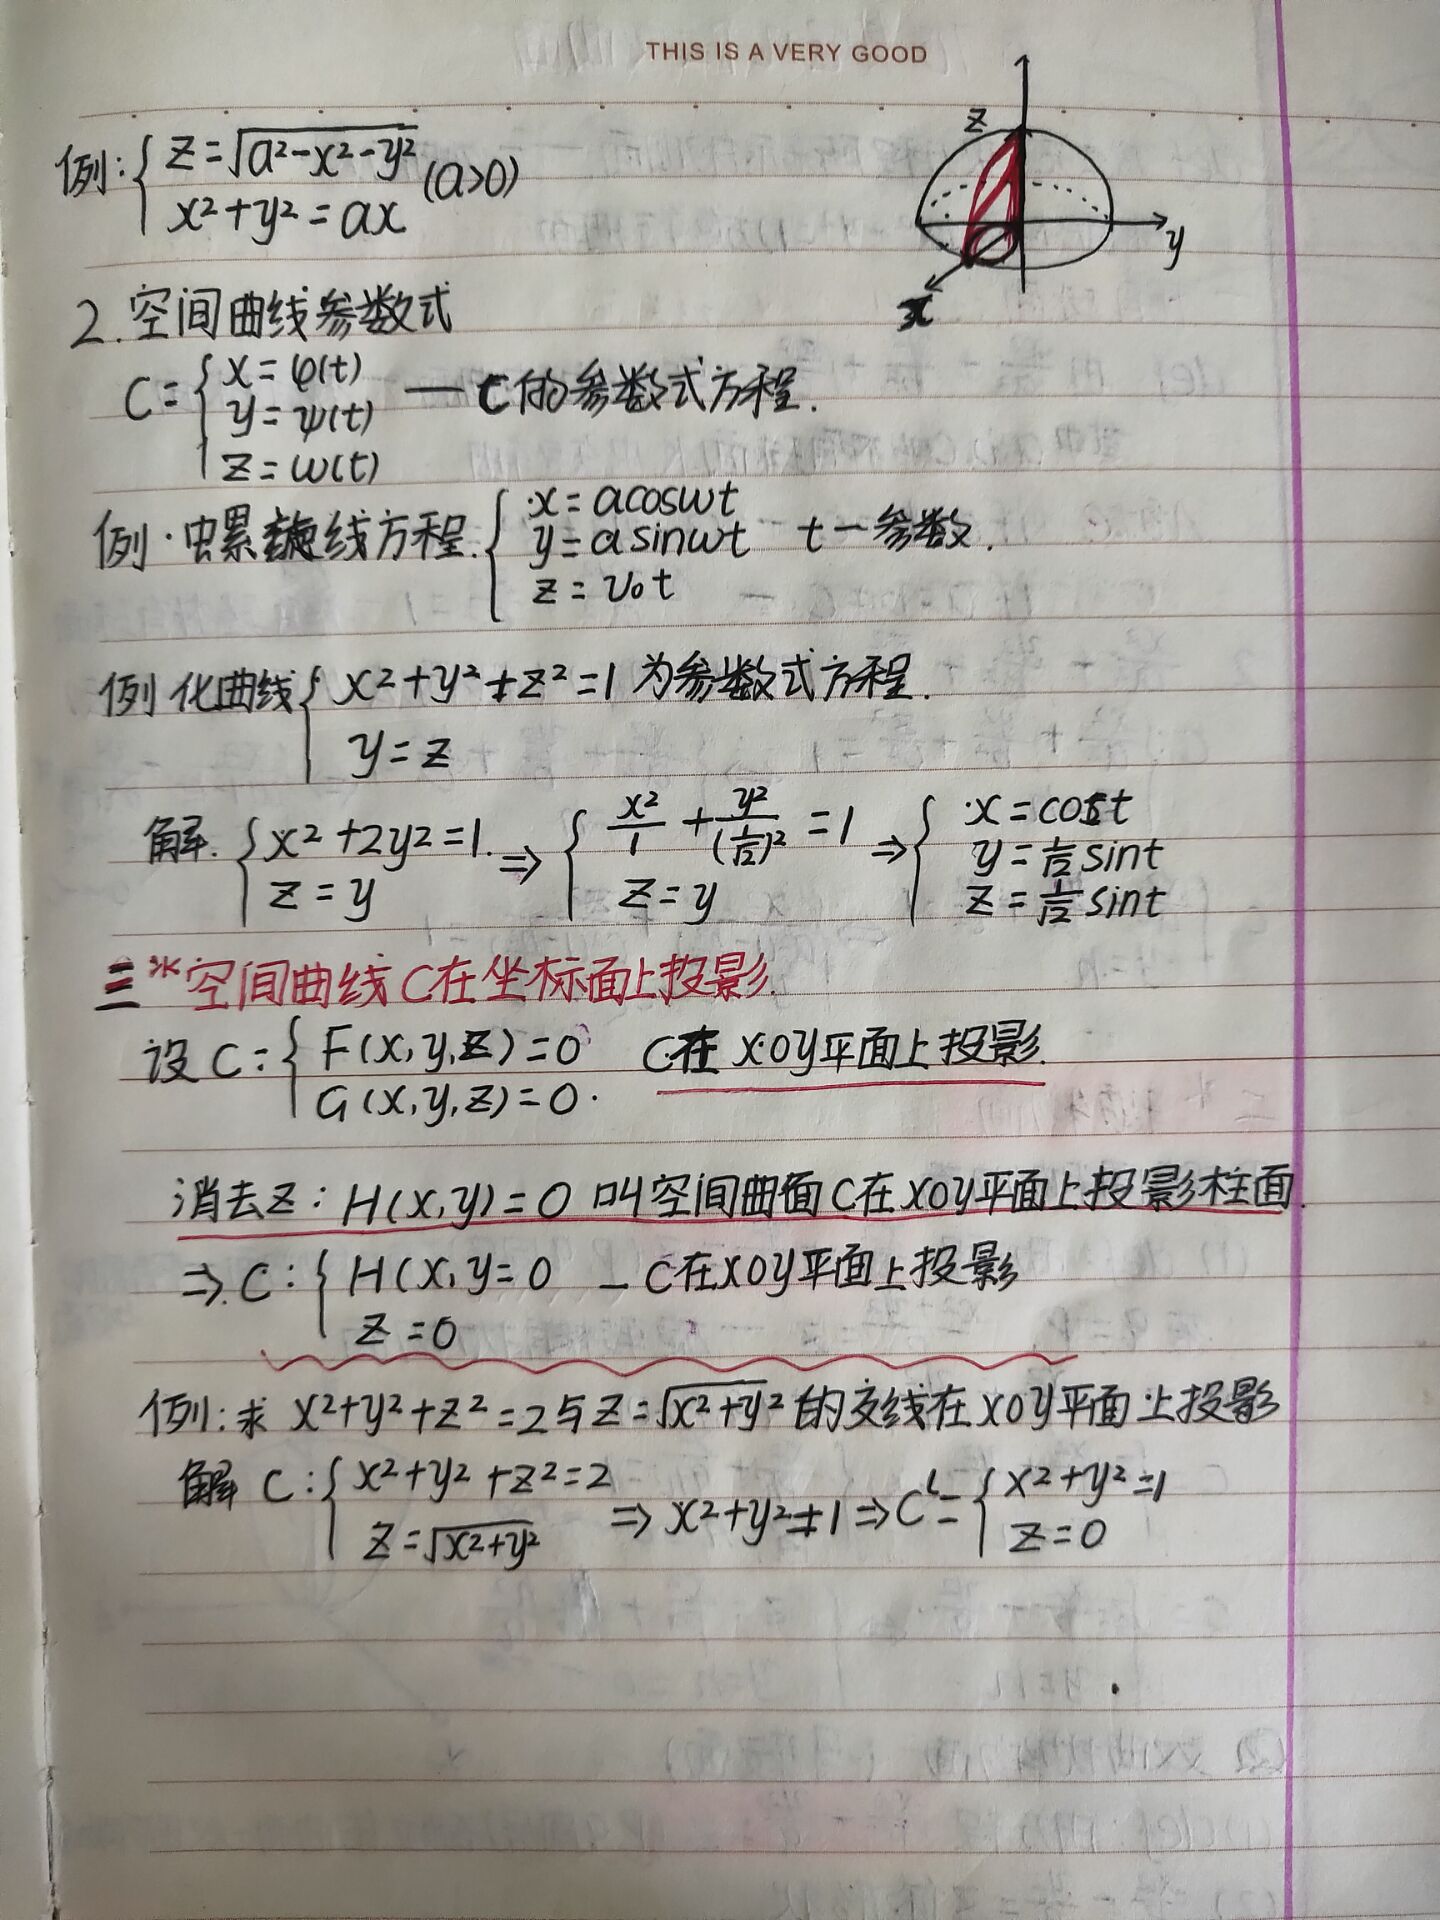 THIS IS A VERY GOOD
例: { z = √(a² - x² - y²) (a>0)
x² + y² = ax
z
y
x
2. 空间曲线参数式
C = { x = φ(t) — C的参数式方程.
y = ψ(t)
z = ω(t)
例. 螺旋线方程. { x = acosωt
y = asinωt t — 参数.
z = v₀t
例 化曲线 { x² + y² + z² = 1 为参数式方程.
y = z
解. { x² + 2y² = 1. ⇒ { x²/1 + y²/(1/√2)² = 1 ⇒ { x = cost
z = y z = y y = 1/√2 sint
z = 1/√2 sint
三* 空间曲线C在坐标面上投影.
设 C: { F(x,y,z) = 0 C在 xoy平面上投影.
G(x,y,z) = 0.
消去z: H(x,y) = 0 叫空间曲面C在xoy平面上投影柱面.
⇒ C: { H(x,y = 0 — C在xoy平面上投影
z = 0
例: 求 x² + y² + z² = 2与z = √(x² + y²) 的交线在xoy平面上投影
解 C: { x² + y² + z² = 2 ⇒ x² + y² = 1 ⇒ C' = { x² + y² = 1
z = √(x² + y²) z = 0